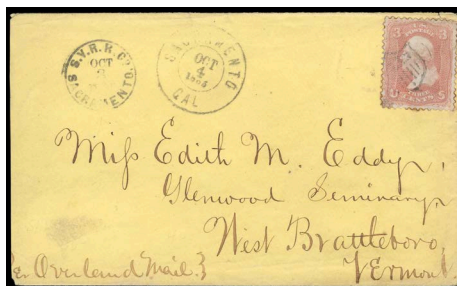 S.V.R.R. Co.
OCT
3
SACRAMENTO.
SACRAMENTO
OCT
4
CAL
3 3
U S
CENTS
Miss Edith M. Eddy,
Glenwood Seminary,
West Brattleboro,
Vermont.
Overland Mail.}